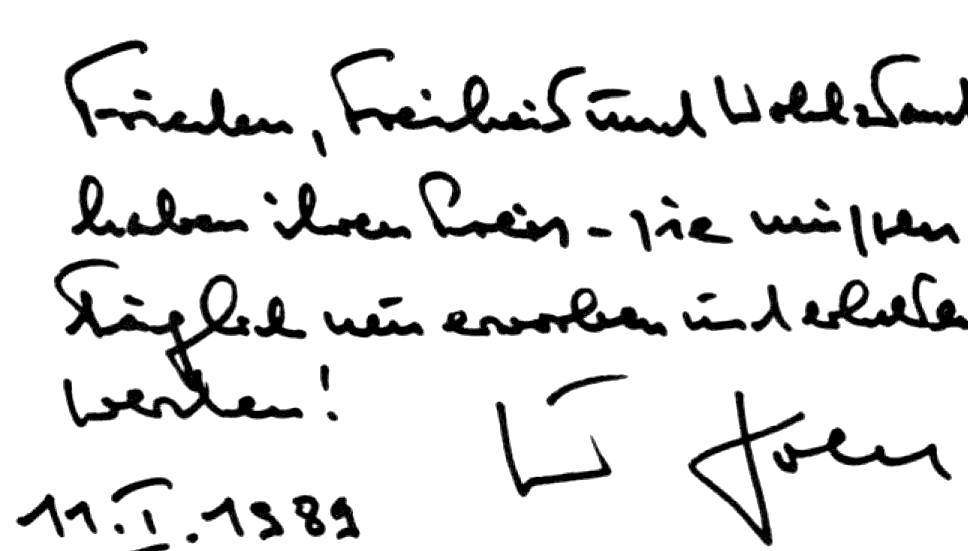 Frieden, Freiheit und Wohlstand
haben ihren Preis - sie müssen
täglich neu erworben und erhalten
werden!
11.I.1989